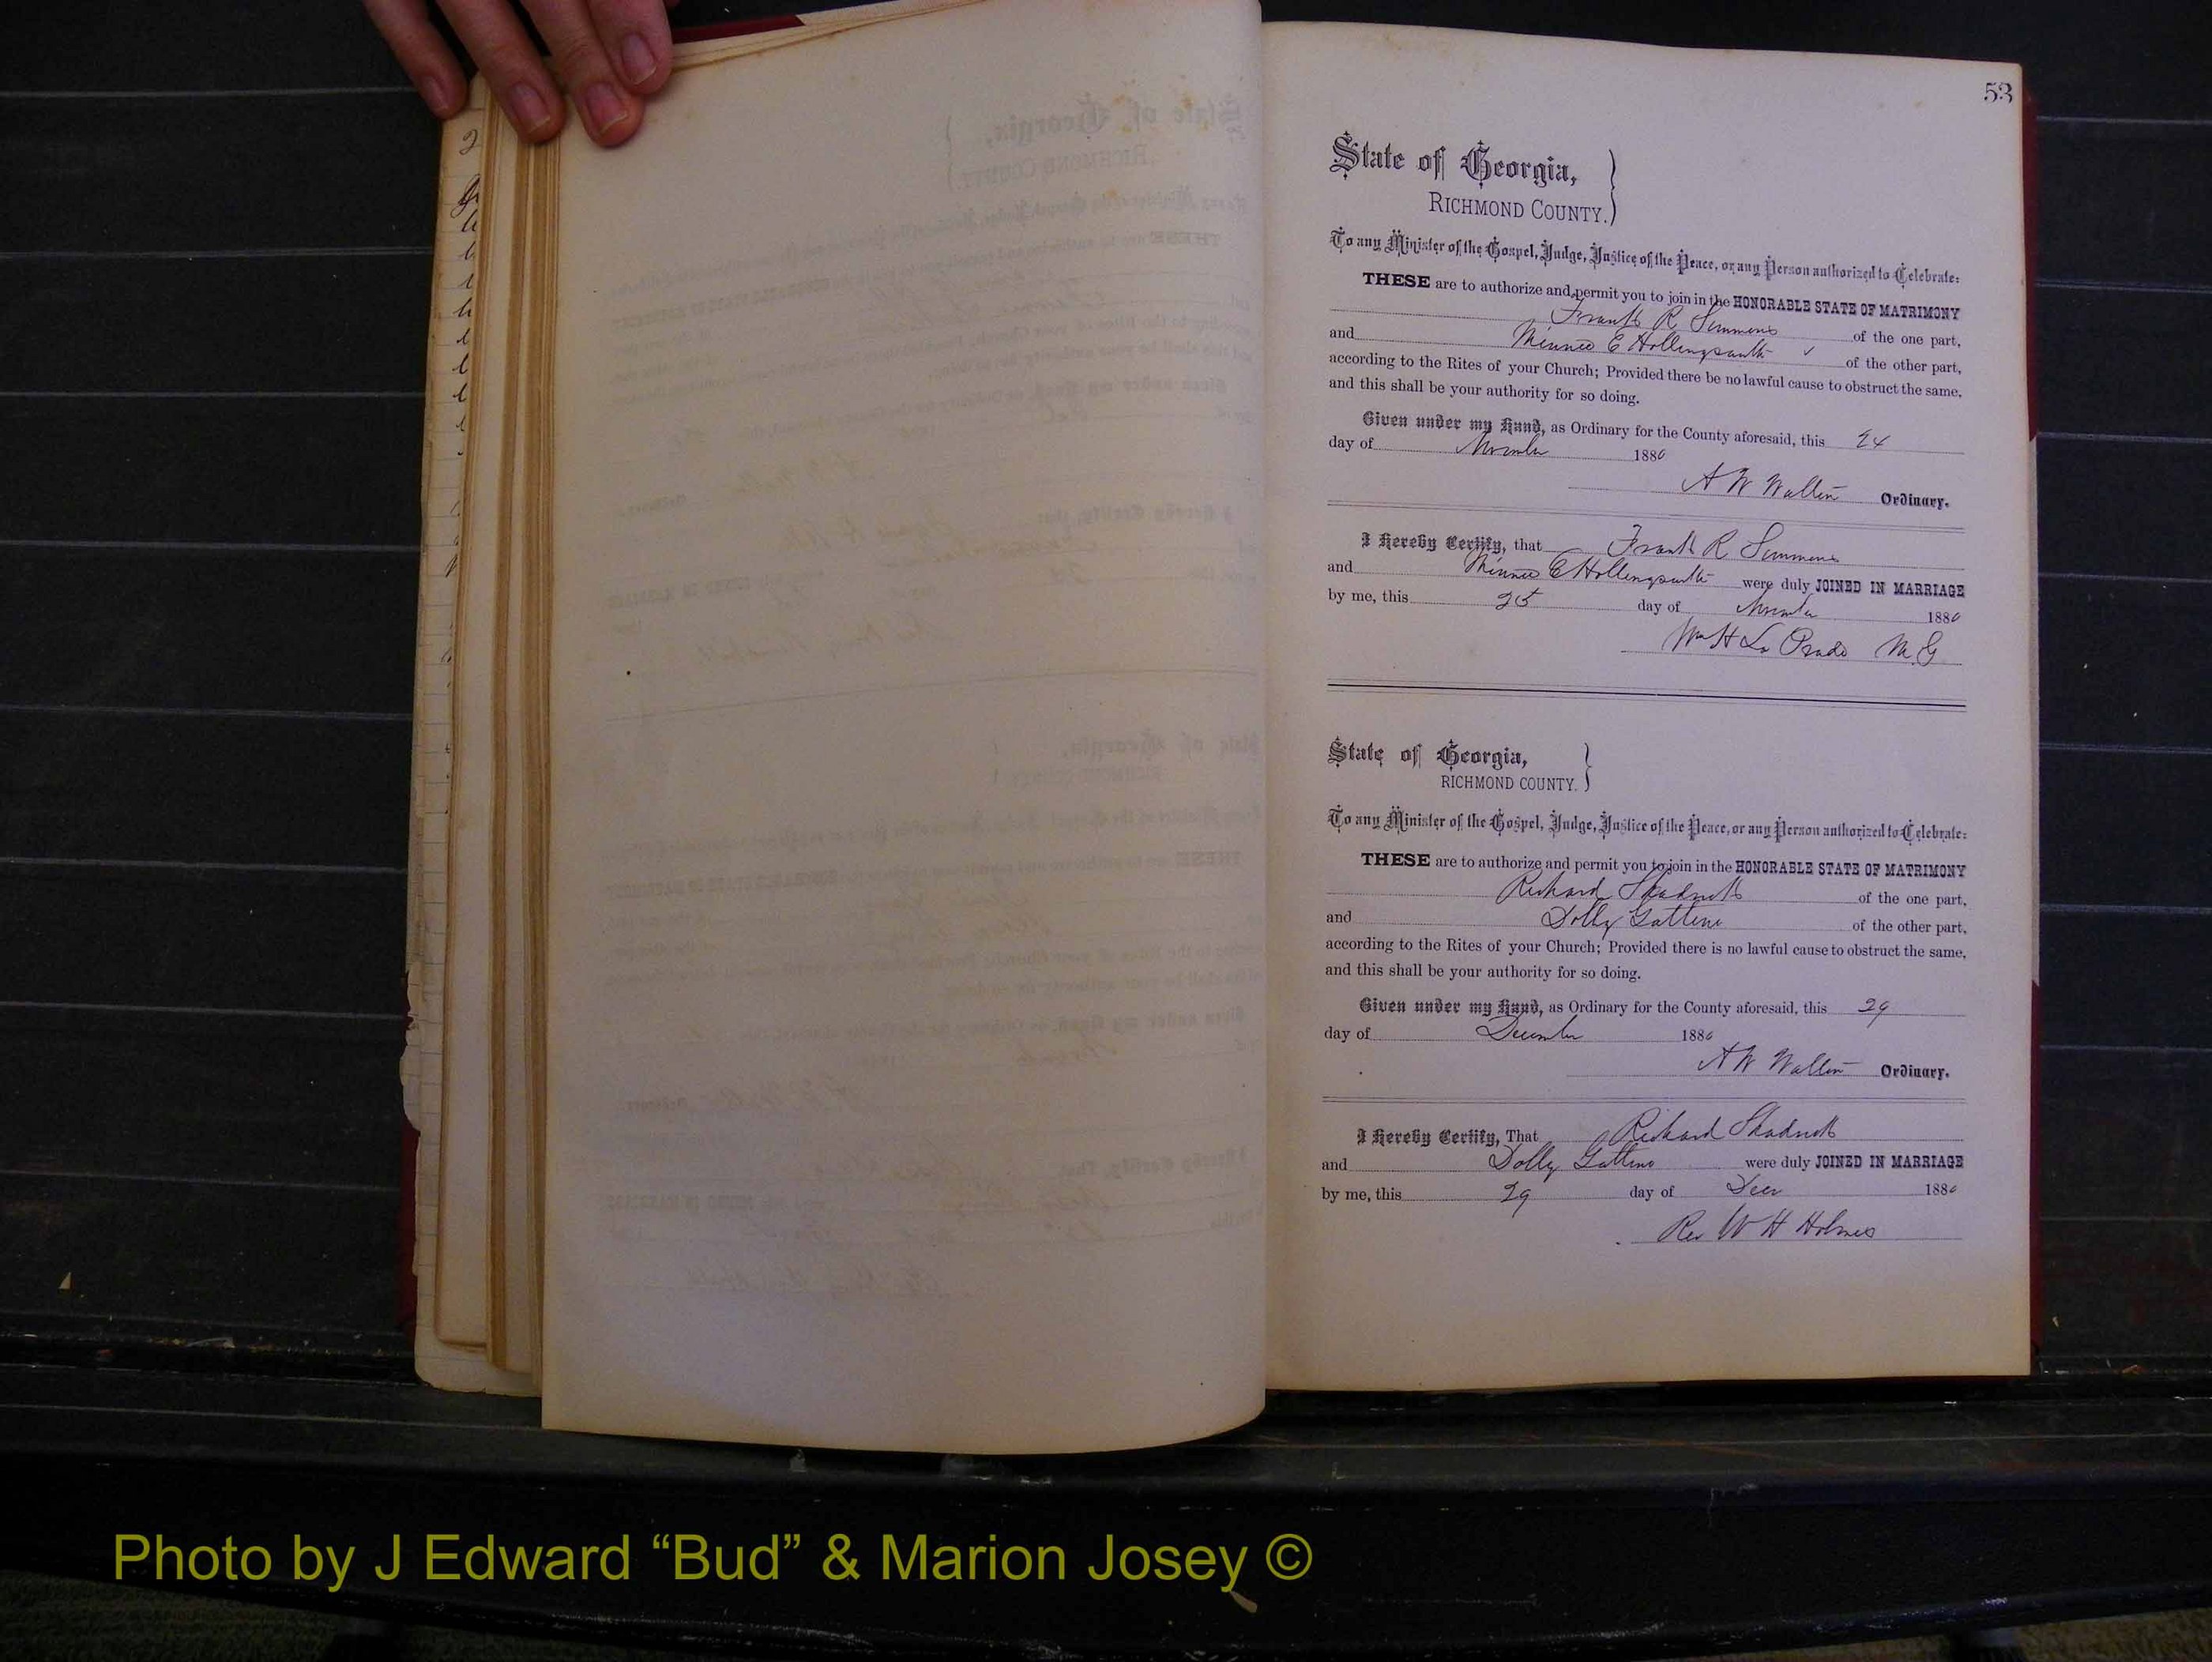 53
State of Georgia,
RICHMOND COUNTY.
To any Minister of the Gospel, Judge, Justice of the Peace, or any Person authorized to Celebrate:
THESE are to authorize and permit you to join in the HONORABLE STATE OF MATRIMONY
Frank R Simmons of the one part,
and Minnie E Hollingsworth of the other part,
according to the Rites of your Church; Provided there be no lawful cause to obstruct the same,
and this shall be your authority for so doing.
Given under my Hand, as Ordinary for the County aforesaid, this 24
day of November 1880
A W Walton Ordinary.
I Hereby Certify, that Frank R Simmons
and Minnie E Hollingsworth were duly JOINED IN MARRIAGE
by me, this 25 day of November 1880
Wm H La Prade M.G
State of Georgia,
RICHMOND COUNTY.
To any Minister of the Gospel, Judge, Justice of the Peace, or any Person authorized to Celebrate:
THESE are to authorize and permit you to join in the HONORABLE STATE OF MATRIMONY
Richard Shadrick of the one part,
and Dolly of the other part,
according to the Rites of your Church; Provided there is no lawful cause to obstruct the same,
and this shall be your authority for so doing.
Given under my Hand, as Ordinary for the County aforesaid, this 29
day of December 1880
A W Walton Ordinary.
I Hereby Certify, That Richard Shadrick
and Dolly were duly JOINED IN MARRIAGE
by me, this 29 day of Decr 1880
Rev W H Holmes
Photo by J Edward “Bud” & Marion Josey ©